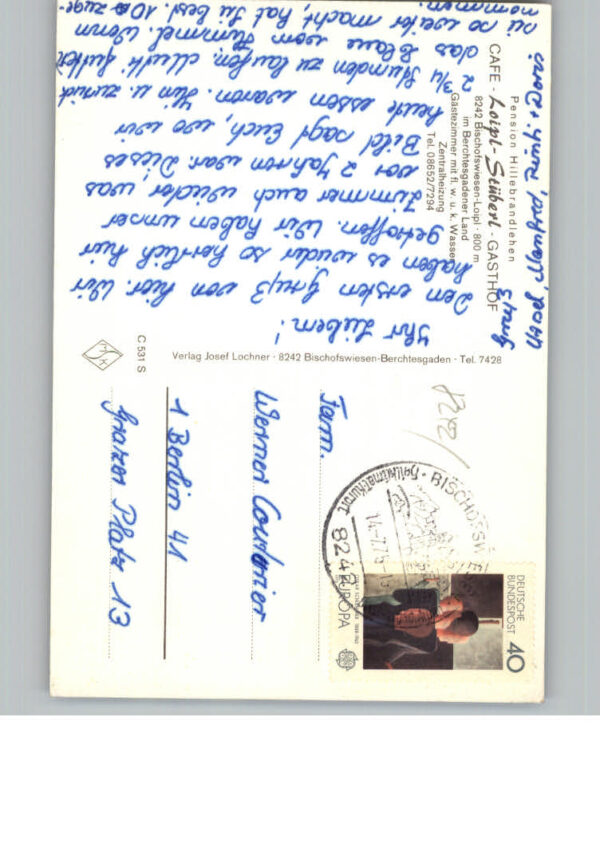 Pension Hillebrandlehen
CAFE - Loipl-Stüberl - GASTHOF
8242 Bischofswiesen-Loipl · 800 m
im Berchtesgadener Land
Gästezimmer mit fl. w. u. k. Wasser
Zentralheizung
Tel. 08652/7294
Ihr Lieben!
Den ersten Gruß von hier. Wir
haben es wieder so herrlich hier
getroffen. Wir haben unser
Zimmer auch wieder was
vor 2 Jahren war. Dieses
Bild sagt Euch, wo wir
heute essen waren. Hin u. zurück
2 3/4 Stunden zu laufen. Mutti futtert
das Blaue vom Himmel. Wenn
sie so weiter macht, hat sie best. 10 zuge-
nommen.
Verlag Josef Lochner · 8242 Bischofswiesen-Berchtesgaden · Tel. 7428
C 531 S
Fam.
Werner
1 Berlin 41
Grazer Platz 13
8242
BISCHOFSWIE
Heilklimatischer Kurort
14.-7.77
DEUTSCHE
BUNDESPOST
40
EUROPA